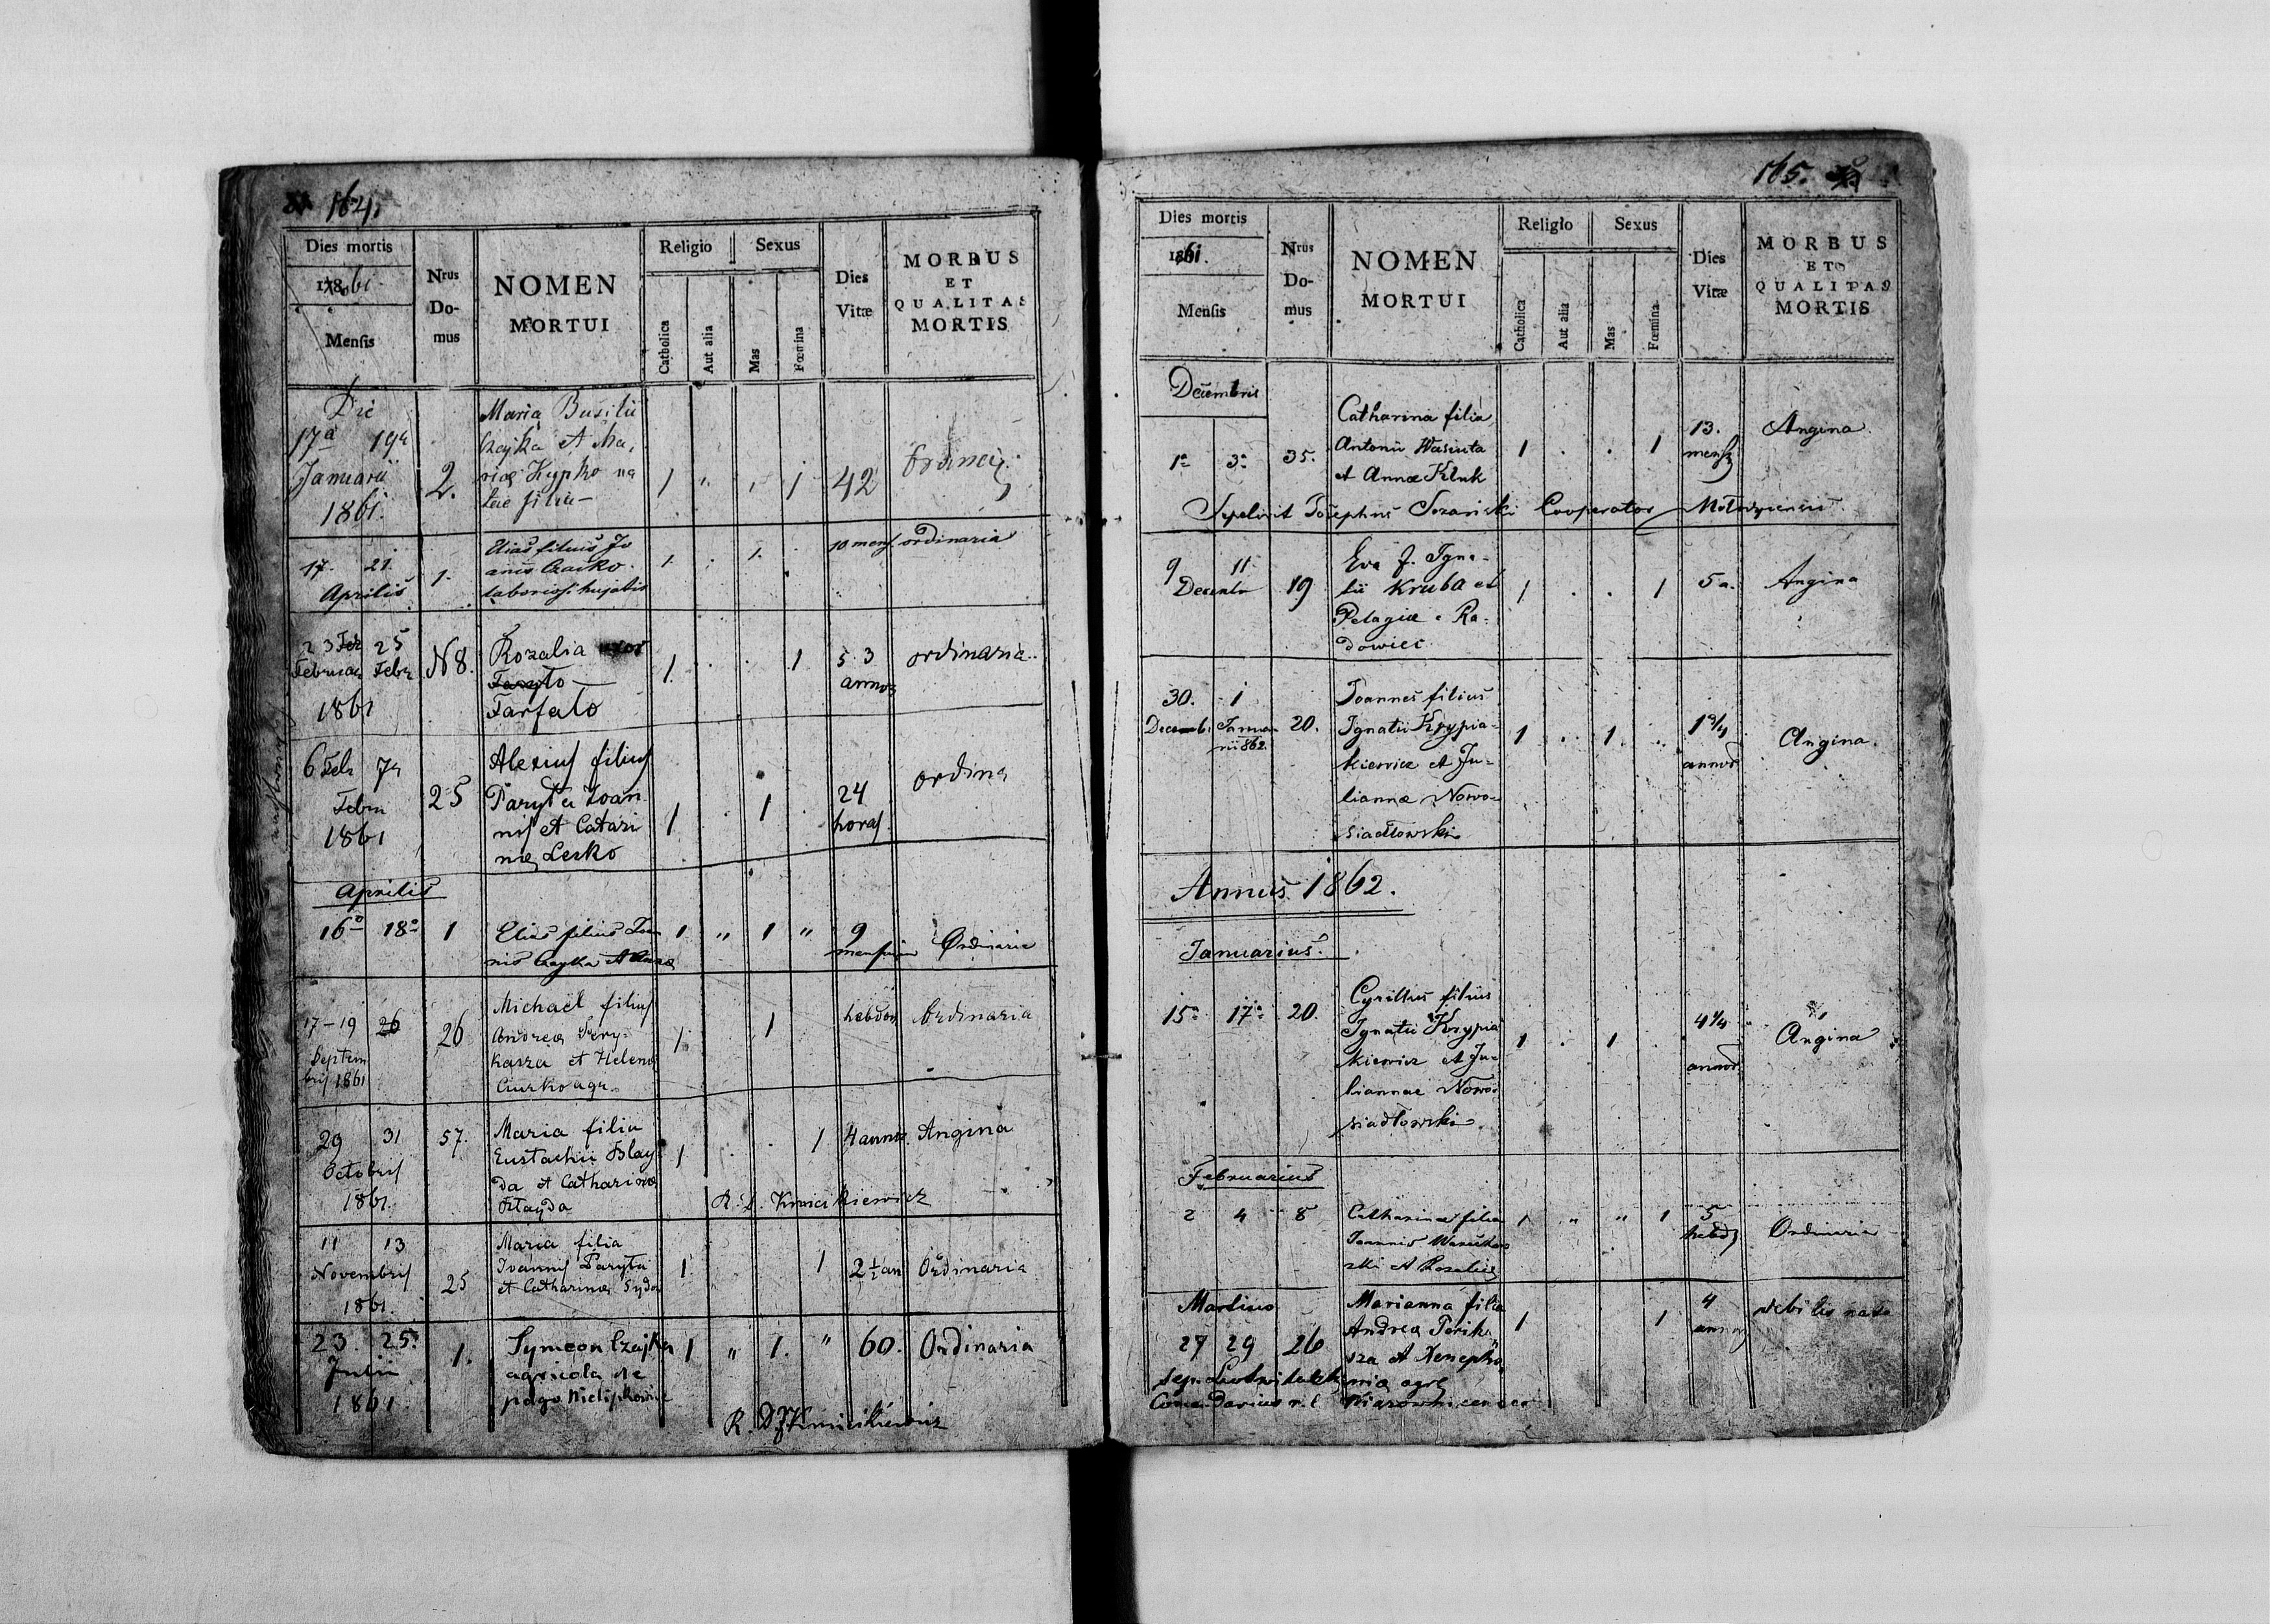 164.
Dies mortis
1861
Mensis
Nrus
Do-
mus
NOMEN
MORTUI
Religio
Catholica
Aut alia
Sexus
Mas
Fœmina
Dies
Vitæ
MORBUS
ET
QUALITAS
MORTIS
Die
17a 19a
Januarii
1861.
2.
Maria Basilii
Czajka et Ma,
riæ Hypko na
tae filia
1 " " 1 42
17. 21.
Aprilis
1.
Elias filius Jo
anis Czaiko
laborios. hujatis
1. . 1. .
10 mens. ordinaria
23 Feb 25
Februar Febr
1861
N8.
Rozalia uxor
Tarfato
1. . . 1
53
annos
ordinaria
6 Feb 7a
Febru
1861
25
Alexius filius
Paryta Joan
nis et Catari
næ Lesko
1 . 1 .
24
horas
ordina
Aprilis
16a 18a 1
Elias filius Joan
nis Czayka et Annæ
1 " 1 "
9
mensium
Ordinaria
17-19 26
Septem
bris 1861
26
Michael filius
Andreæ Pery-
kasza et Helenæ
Ciurko agr.
1. 1
hebdom
Ordinaria
29 31
Octobris
1861.
57.
Maria filia
Eustachii Blay
da et Catharinæ
1 . . 1
4 annos
Angina
11 13
Novembris
1861.
25
Maria filia
Joannis Paryta
et Catharinæ Syda
1. 1
2 1/2 an
Ordinaria
23. 25.
Julii
1861.
1.
Symeon Czajka
agricola de
pago Nielipkowice
1 " 1. " 60. Ordinaria
165.
Dies mortis
1861.
Mensis
Nrus
Do-
mus
NOMEN
MORTUI
Religio
Catholica
Aut alia
Sexus
Mas
Fœmina
Dies
Vitæ
MORBUS
ET
QUALITAS
MORTIS
Decembris
1a 3a 35.
Catharina filia
Antonii Wasiuta
et Annæ Kluk
1 . . 1
13.
mens
Angina
Sepelivit Josephus Sozański Cooperator
9 11.
Decembr
19
Eva f. Igna-
tii Kruba et
Pelagiæ Ra-
dowiec
1 . . 1 5 a. Angina
30. 1
Decemb. Janua
rii 862.
20.
Joannes filius
Ignatii Krypia-
kiewicz et Ju-
liannæ Nowo-
siadłowski
1 . 1 .
1 3/4
annor
Angina.
Annus 1862.
Januarius.
15a 17a 20.
Cyrillus filius
Ignatii Krypia
kiewicz et Ju-
liannae Nowo
siadłowski
1 . 1 .
4 1/4
annor
Angina
Februarius
2 4 8
Catharina filia
Joannis
ski et Rosaliæ
1 " " 1
5
hebd
Ordinaria
Martius
27 29 26
Marianna filia
Andreæ Perik
sza et Xeneph
niæ agre
1 1
4
annor
debilis nata